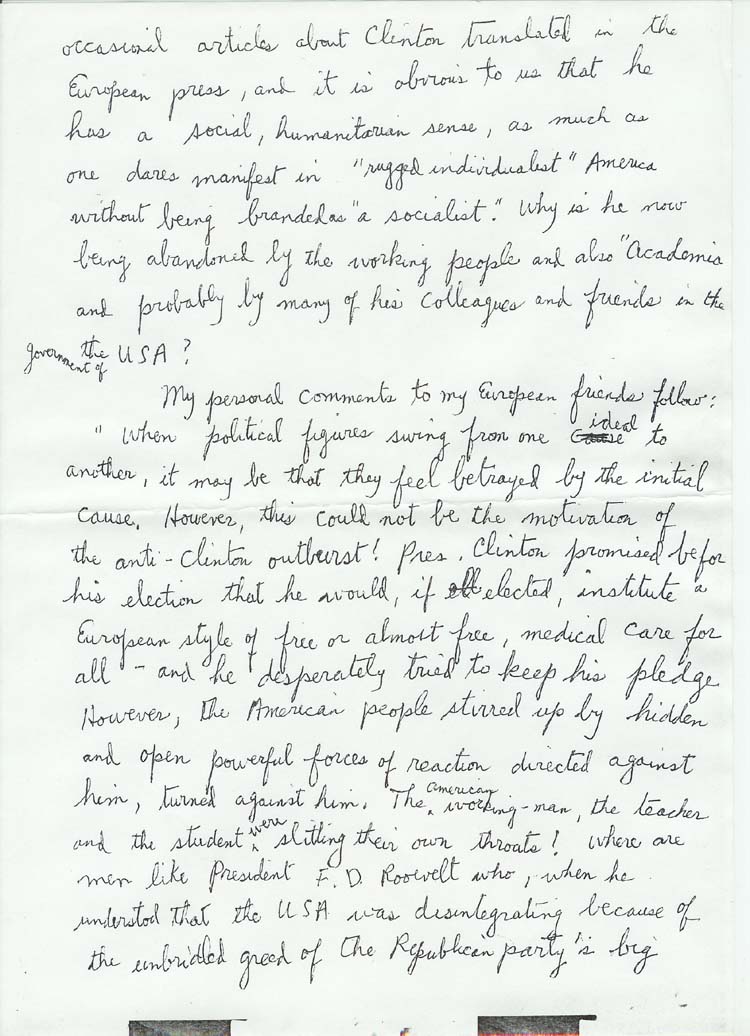 occasional articles about Clinton translated in the
European press, and it is obvious to us that he
has a social, humanitarian sense, as much as
one dares manifest in "rugged individualist" America
without being branded as "a socialist". Why is he now
being abandoned by the working people and also "Academia
and probably by many of his Colleagues and friends in the
government of the USA?
My personal comments to my European friends follow:
"When political figures swing from one ideal to
another, it may be that they feel betrayed by the initial
cause. However, this could not be the motivation of
the anti-Clinton outburst! Pres. Clinton promised befor
his election that he would, if elected, institute a
European style of free or almost free, medical care for
all - and he desperately tried to keep his pledge
However, the American people stirred up by hidden
and open powerful forces of reaction directed against
him, turned against him. The American working-man, the teacher
and the student were slitting their own throats! Where are
men like President F. D. Roosevelt who, when he
understod that the USA was disintegrating because of
the unbridled greed of the Republican party's big